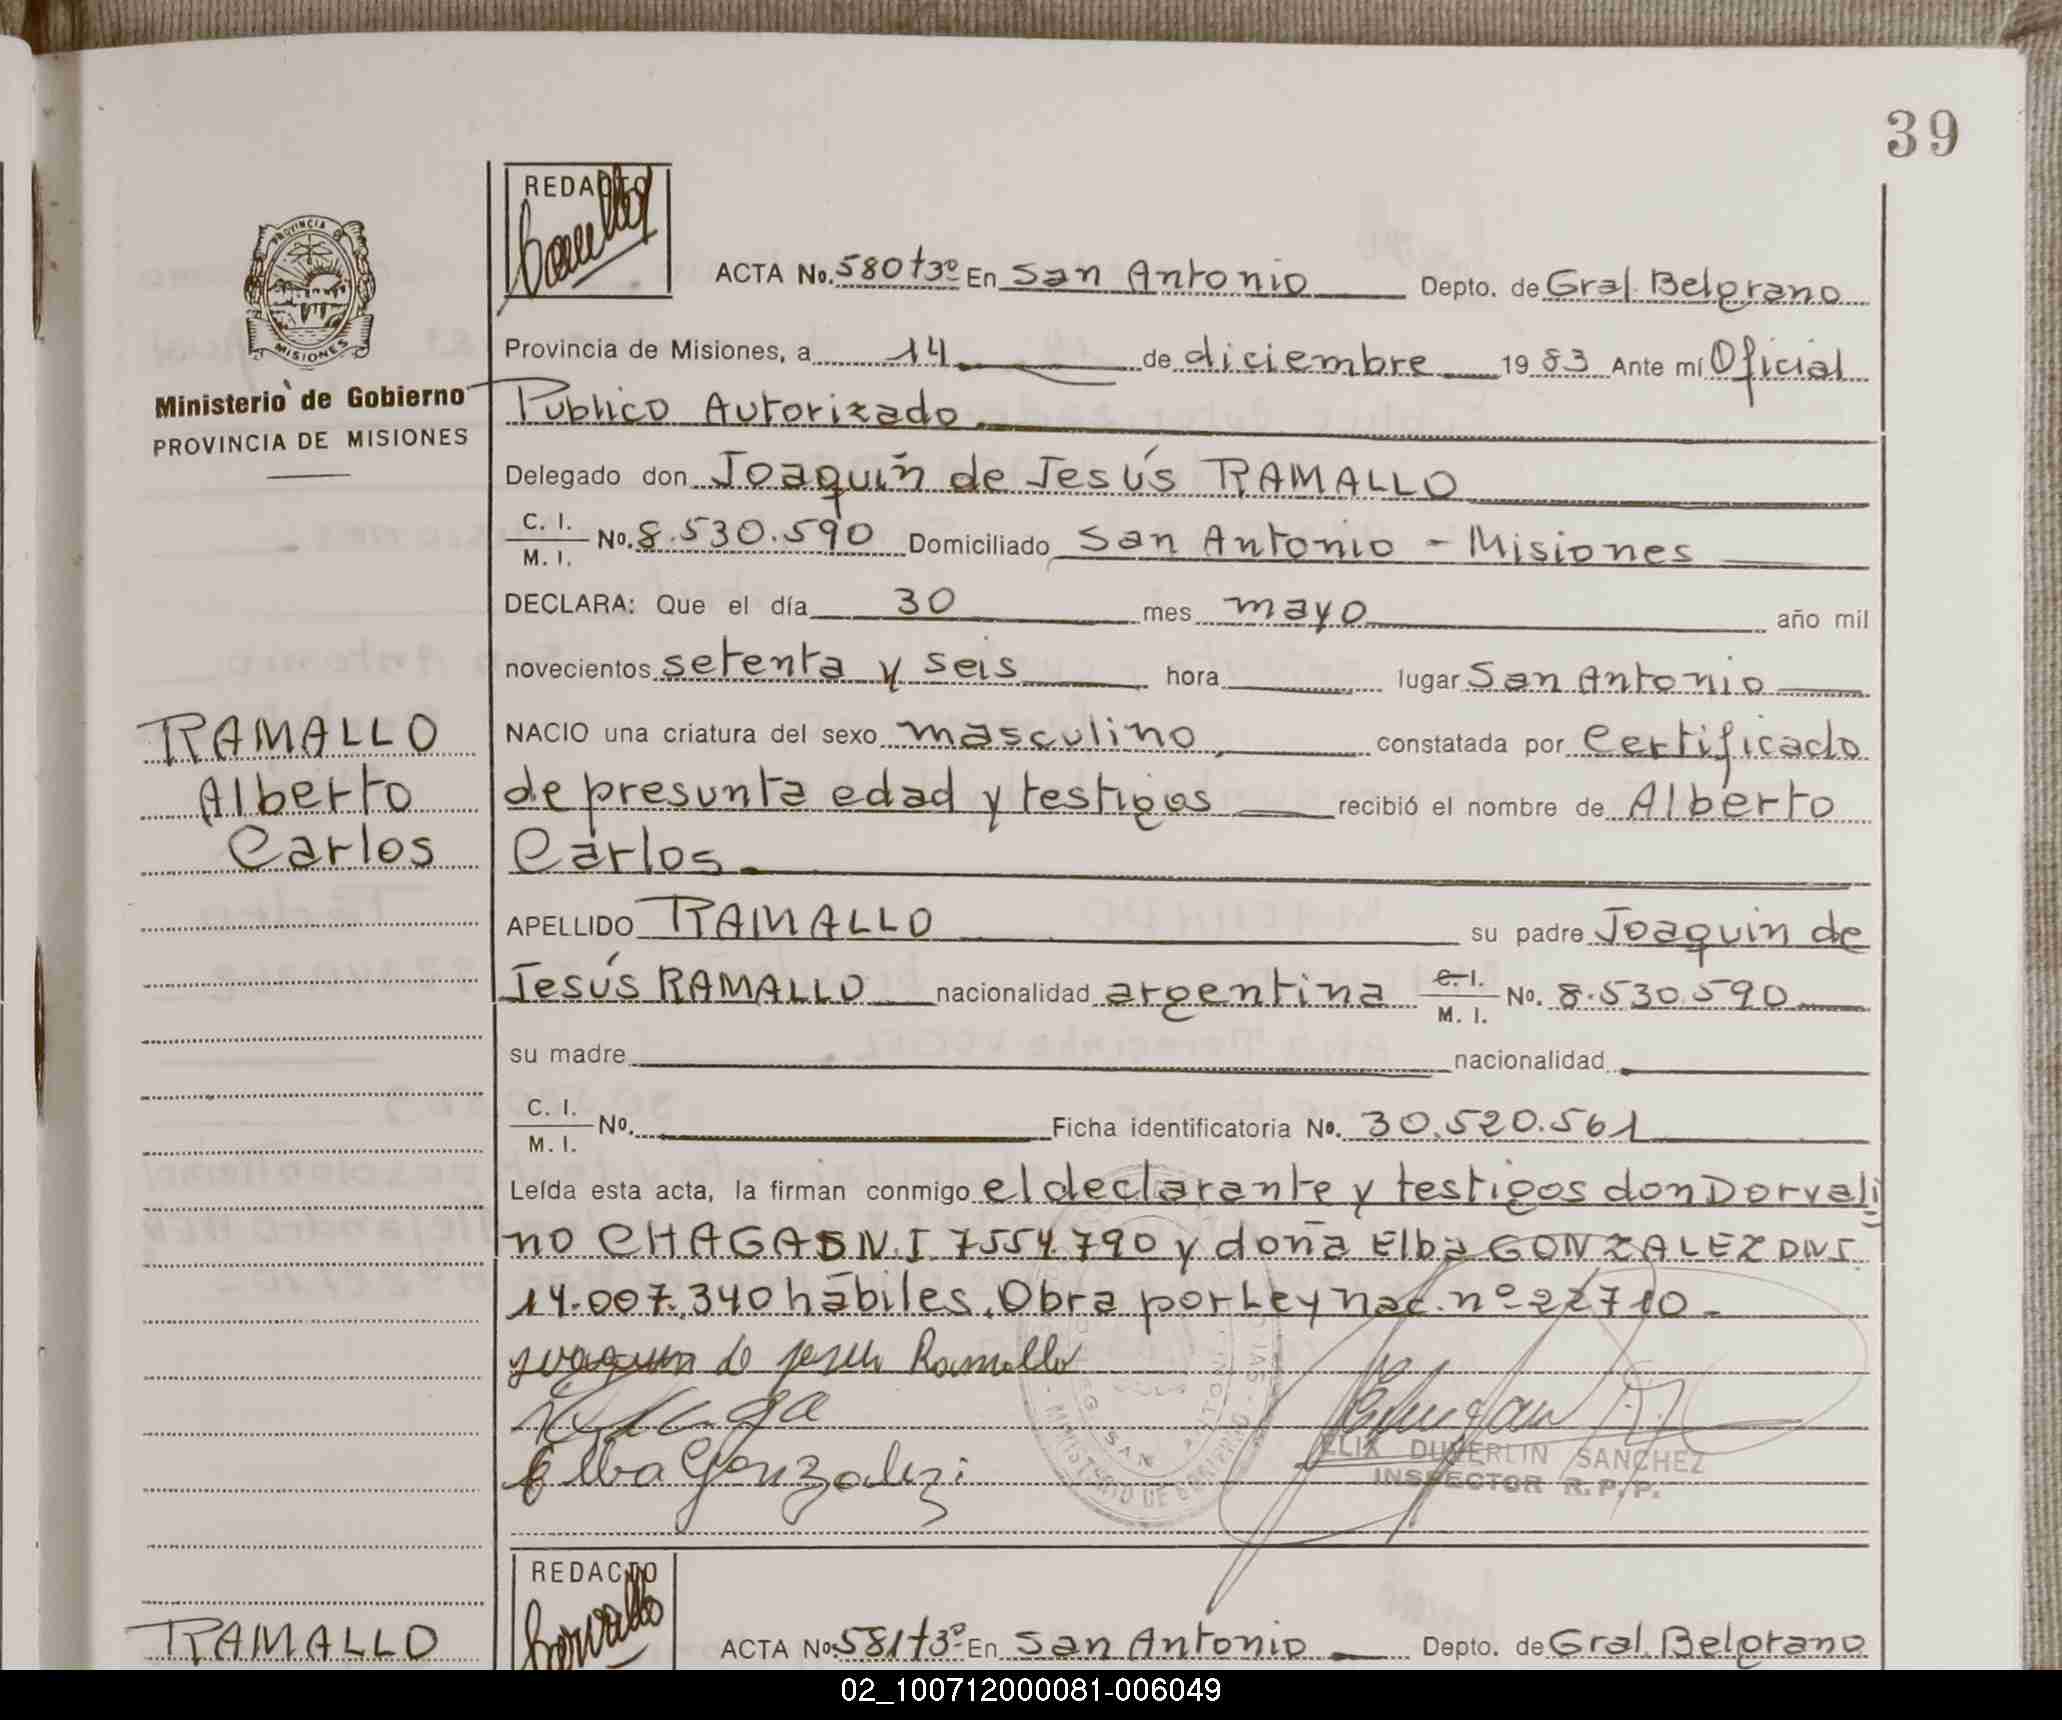 39
REDACTO
ACTA No. 580 t3º En San Antonio Depto. de Gral. Belgrano
PROVINCIA DE
MISIONES
Provincia de Misiones, a 14 de diciembre 1983 Ante mí Oficial
Ministerio de Gobierno
PROVINCIA DE MISIONES
Público Autorizado
Delegado don Joaquín de Jesús RAMALLO
C. I.
M. I. No. 8.530.590 Domiciliado San Antonio - Misiones
DECLARA: Que el día 30 mes mayo año mil
novecientos setenta y seis hora lugar San Antonio
NACIO una criatura del sexo masculino, constatada por Certificado
RAMALLO
Alberto
Carlos
de presunta edad y testigos recibió el nombre de Alberto
Carlos.
APELLIDO RAMALLO su padre Joaquín de
Jesús RAMALLO nacionalidad argentina C. I.
M. I. No. 8.530.590
su madre nacionalidad
C. I.
M. I. No. Ficha identificatoria No. 30.520.561
Leída esta acta, la firman conmigo el declarante y testigos don Dorvali
no CHAGAS DN.I 7554.790 y doña Elba GONZALEZ DNI
14.007.340 hábiles. Obra por Ley nac. nº 22710 -
Joaquin de Jesus Ramallo
Elba Gonzalez
MINISTERIO DE GOBIERNO
SAN ANTONIO
DUVERLIN SANCHEZ
INSPECTOR R.P.P.
REDACTO
RAMALLO
ACTA No. 581 t3º En San Antonio Depto. de Gral. Belgrano
02_100712000081-006049